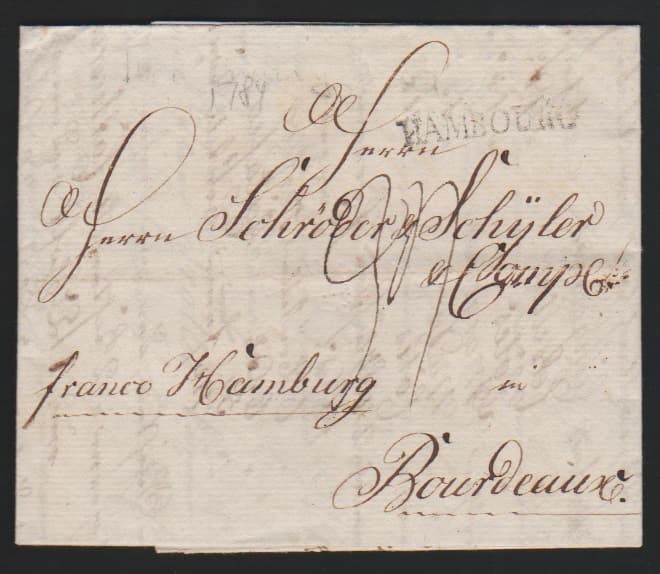 1784
HAMBOURG
Herrn
Herrn Schröder & Schÿler
& Comp
franco Hamburg
in
Bourdeaux.